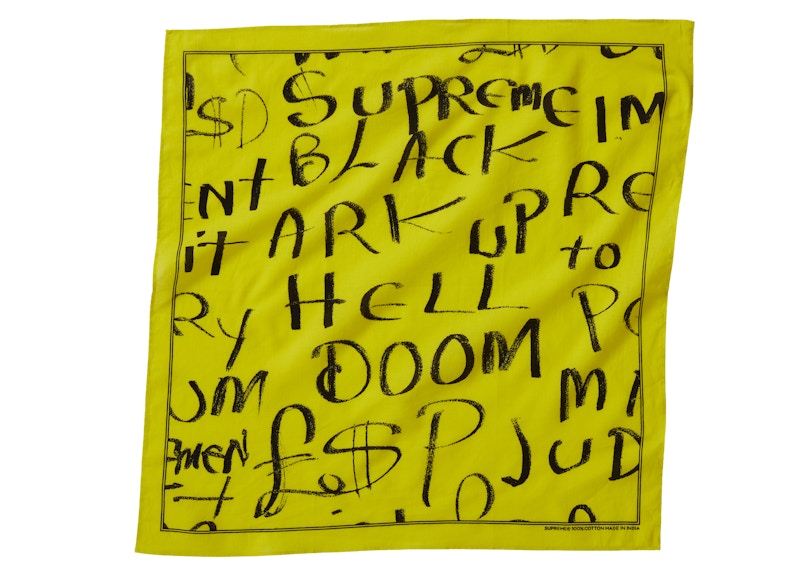 £$D
$D $UPREME IM
BLACK
ENt ARK UP RE
it to
Ry HELL PO
UM DOOM MI
EMEN £o$P JUD
SUPREME® 100% COTTON MADE IN INDIA